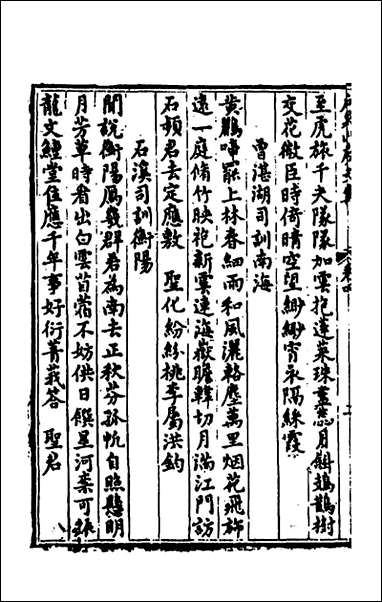 至虎旅千夫隊隊加雲抱蓬萊珠晝蕊月斜鳷鵲樹
交花徼臣時倚晴空望緲緲霄承隔絳霞
曾湛湖司訓南海
黄鸝囀罷上林春細雨和風灑輅塵萬里烟花飛斾
遠一庭脩竹映袍新雲連海嶽瞻韓切月滿江門訪
石頻君去定應敷 聖化紛紛桃李屬洪鈞
石溪司訓衡陽
聞說衡陽鴈幾群君為南去正秋芬孤忱自照懸明
月芳草時看出白雲苜蓿不妨供日饌星河柰可鋹
龍文鱣堂住應千年事好衍菁莪荅 聖君